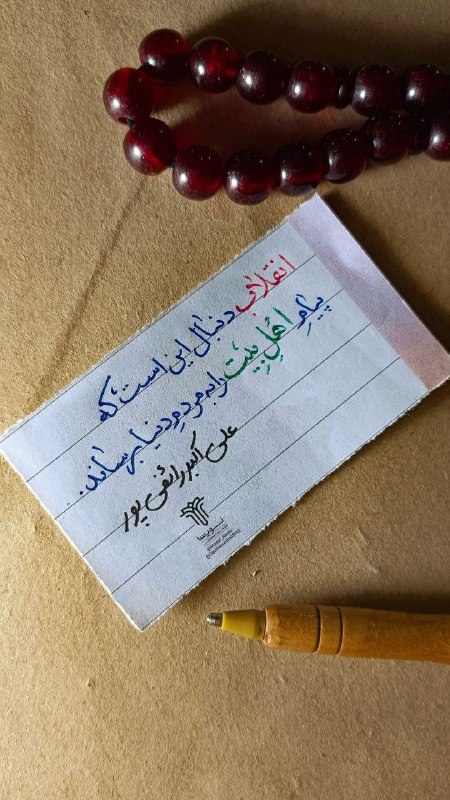 انقلاب دنبال این است، که
پیامِ اهلِ بیت را به مردمِ دنیا برساند.
علی اکبر رائفی پور
نویسا